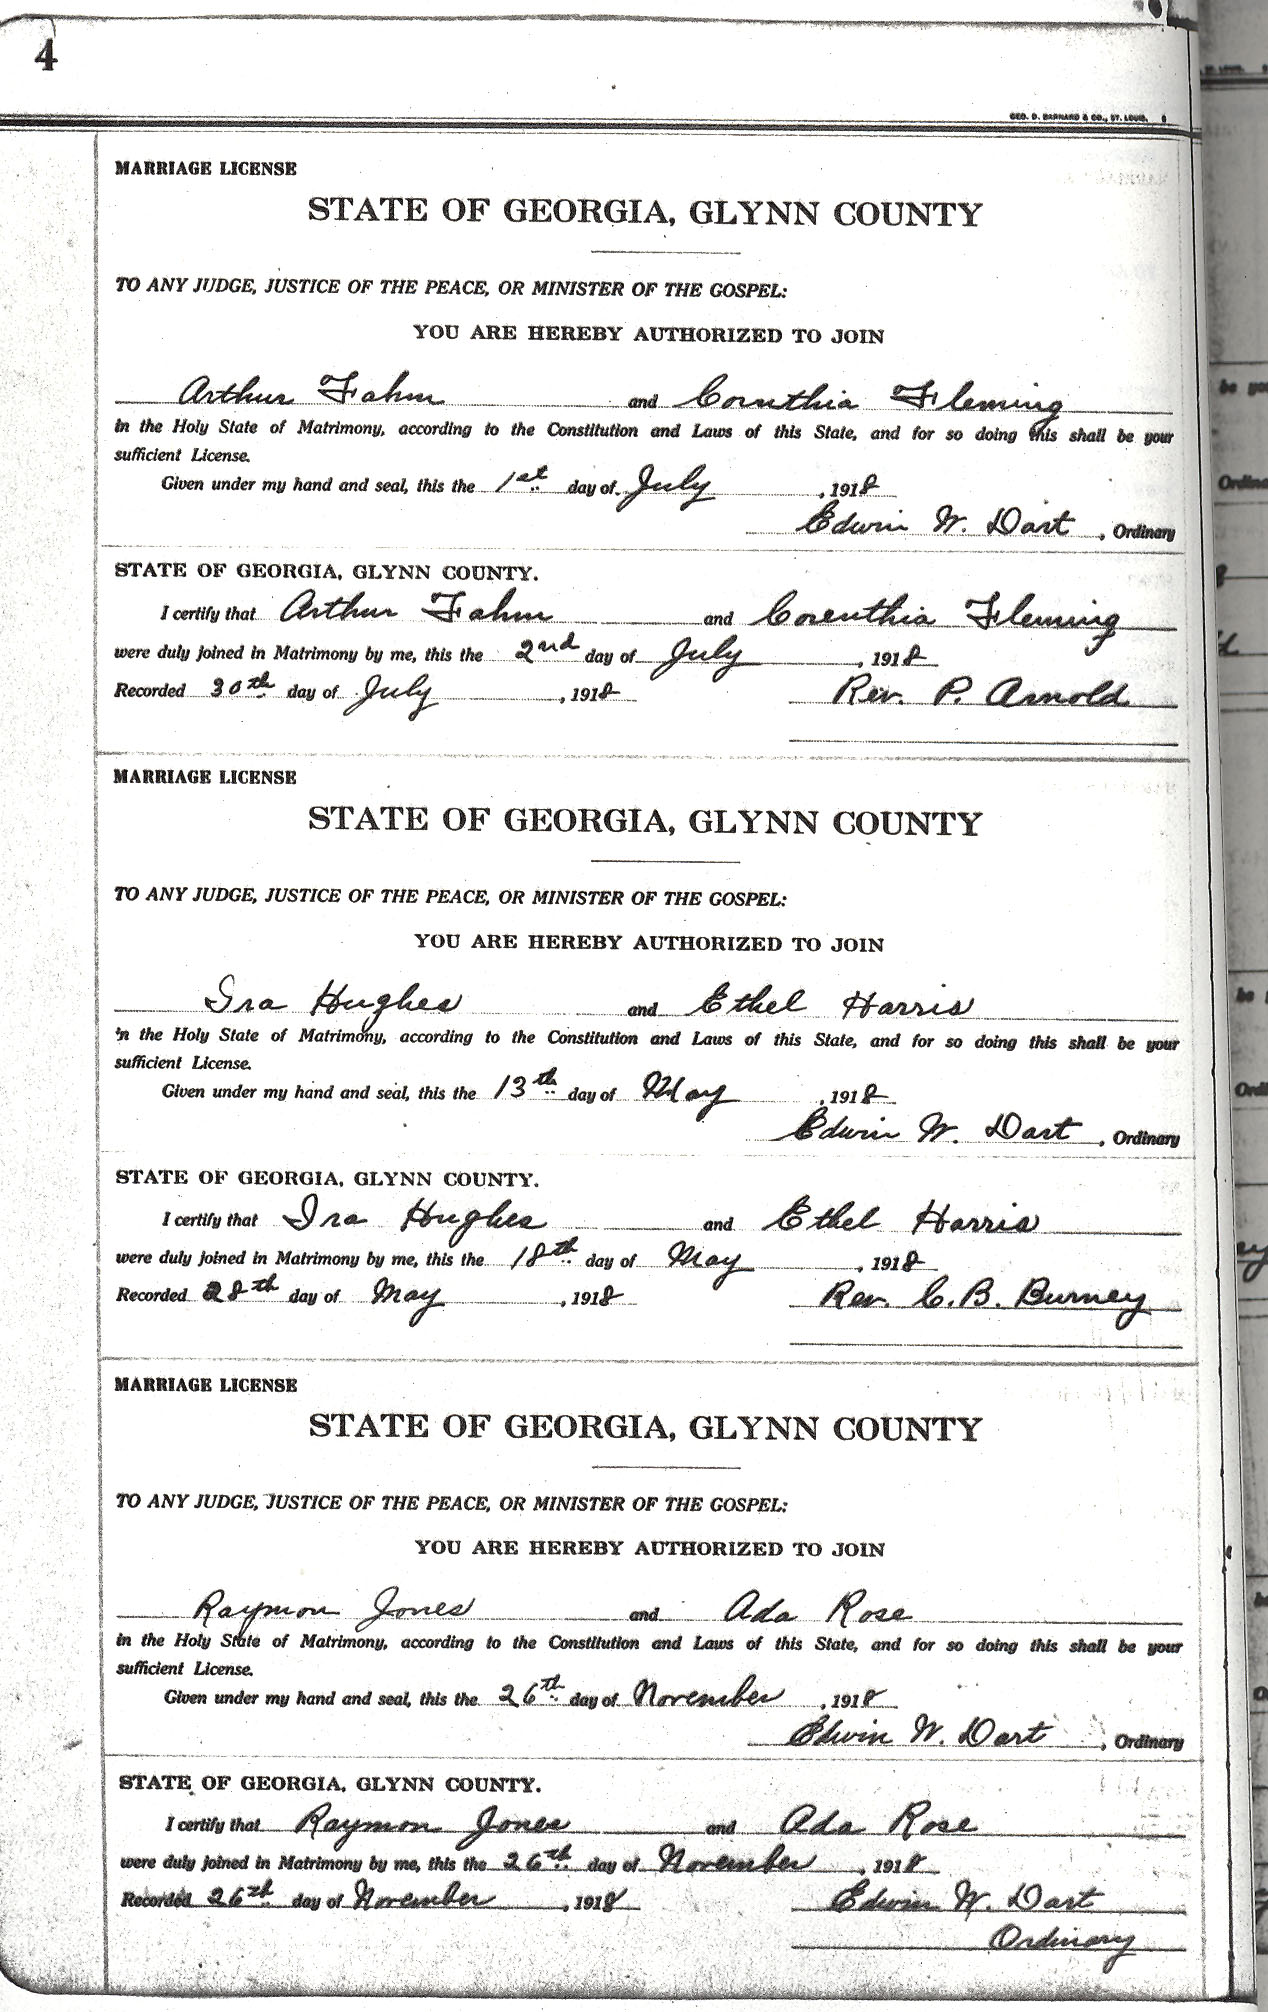 4
GEO. D. BARNARD & CO., ST. LOUIS.
MARRIAGE LICENSE
STATE OF GEORGIA, GLYNN COUNTY
TO ANY JUDGE, JUSTICE OF THE PEACE, OR MINISTER OF THE GOSPEL:
YOU ARE HEREBY AUTHORIZED TO JOIN
Arthur Fahm and Cornthia Fleming
in the Holy State of Matrimony, according to the Constitution and Laws of this State, and for so doing this shall be your
sufficient License.
Given under my hand and seal, this the 1st day of July, 1918
Edwin W. Dart, Ordinary
STATE OF GEORGIA, GLYNN COUNTY.
I certify that Arthur Fahm and Corenthia Fleming
were duly joined in Matrimony by me, this the 2nd day of July, 1918
Recorded 30th day of July, 1918 Rev. P. Arnold
MARRIAGE LICENSE
STATE OF GEORGIA, GLYNN COUNTY
TO ANY JUDGE, JUSTICE OF THE PEACE, OR MINISTER OF THE GOSPEL:
YOU ARE HEREBY AUTHORIZED TO JOIN
Ira Hughes and Ethel Harris
in the Holy State of Matrimony, according to the Constitution and Laws of this State, and for so doing this shall be your
sufficient License.
Given under my hand and seal, this the 13th day of May, 1918
Edwin W. Dart, Ordinary
STATE OF GEORGIA, GLYNN COUNTY.
I certify that Ira Hughes and Ethel Harris
were duly joined in Matrimony by me, this the 18th day of May, 1918
Recorded 28th day of May, 1918 Rev. C. B. Burney
MARRIAGE LICENSE
STATE OF GEORGIA, GLYNN COUNTY
TO ANY JUDGE, JUSTICE OF THE PEACE, OR MINISTER OF THE GOSPEL:
YOU ARE HEREBY AUTHORIZED TO JOIN
Raymon Jones and Ada Rose
in the Holy State of Matrimony, according to the Constitution and Laws of this State, and for so doing this shall be your
sufficient License.
Given under my hand and seal, this the 26th day of November, 1918
Edwin W. Dart, Ordinary
STATE OF GEORGIA, GLYNN COUNTY.
I certify that Raymon Jones and Ada Rose
were duly joined in Matrimony by me, this the 26th day of November, 1918
Recorded 26th day of November, 1918 Edwin W. Dart
Ordinary